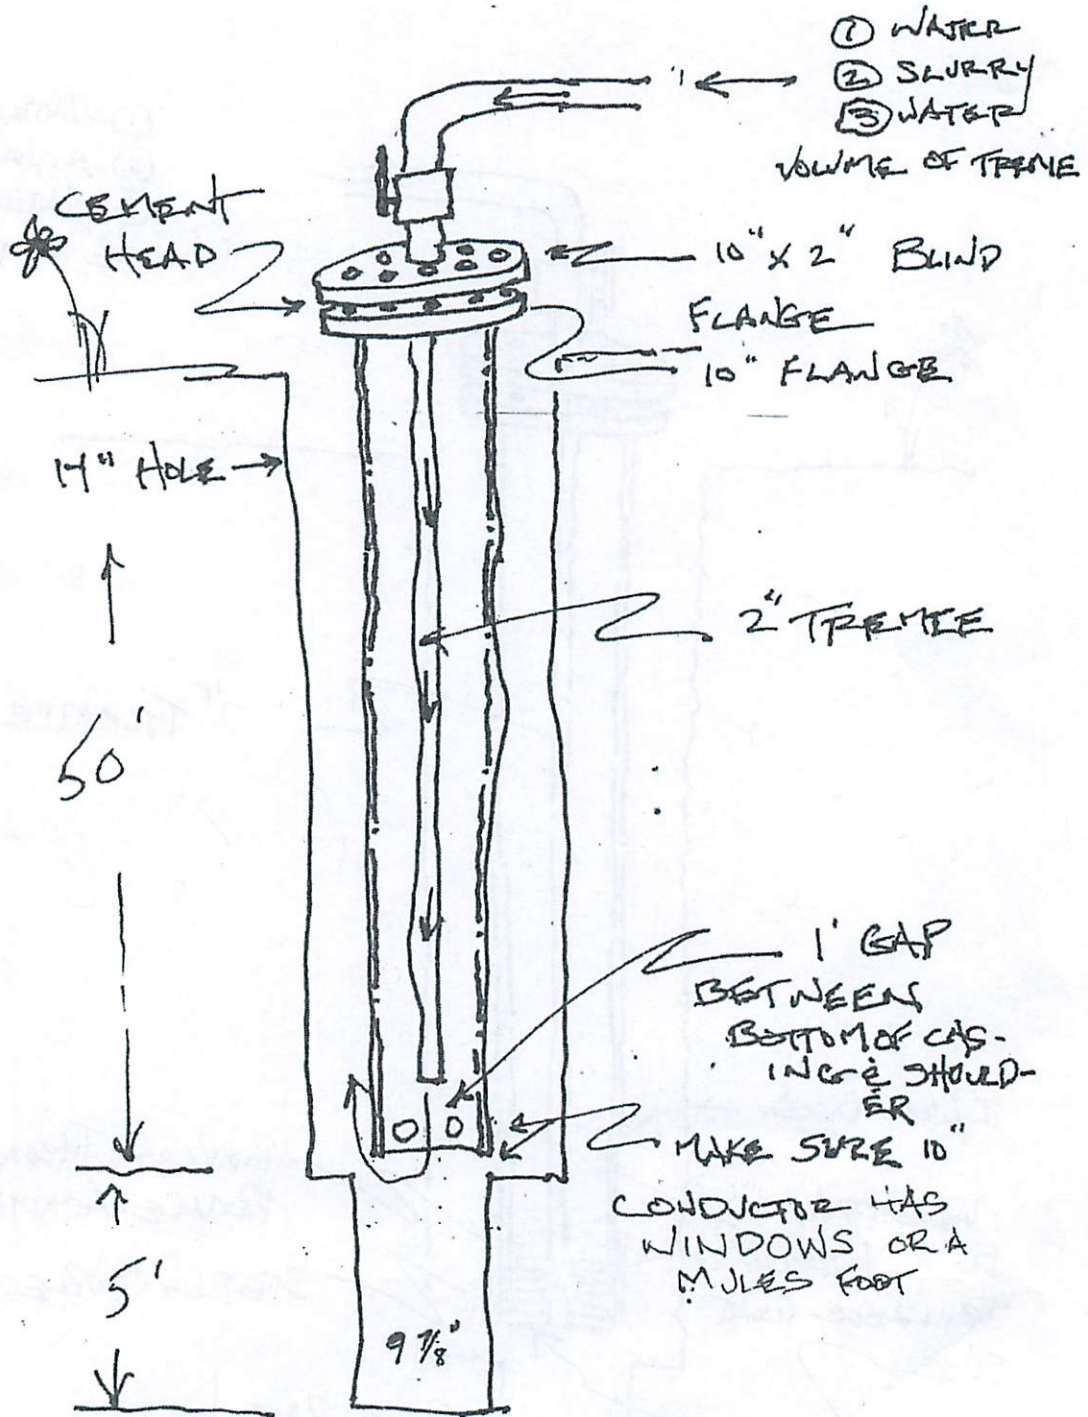 ① WATER
② SLURRY
③ WATER
VOLUME OF TREMIE
CEMENT
HEAD
10" X 2" BLIND
FLANGE
10" FLANGE
14" HOLE
2" TREMIE
50'
1' GAP
BETWEEN
BOTTOM OF CAS-
ING & SHOULD-
ER
MAKE SURE 10"
CONDUCTOR HAS
WINDOWS OR A
MULES FOOT
5'
9 7/8"